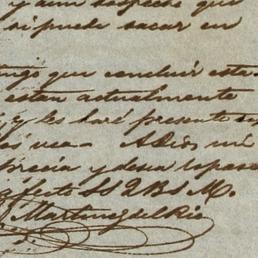 y aun sospecho que
si puede sacar en
tengo que concluir esta
estan actualmente
y les haré presente
vea. Adios, mi
precia y desea
afecto SS Q B S M.
Martinez del Rio